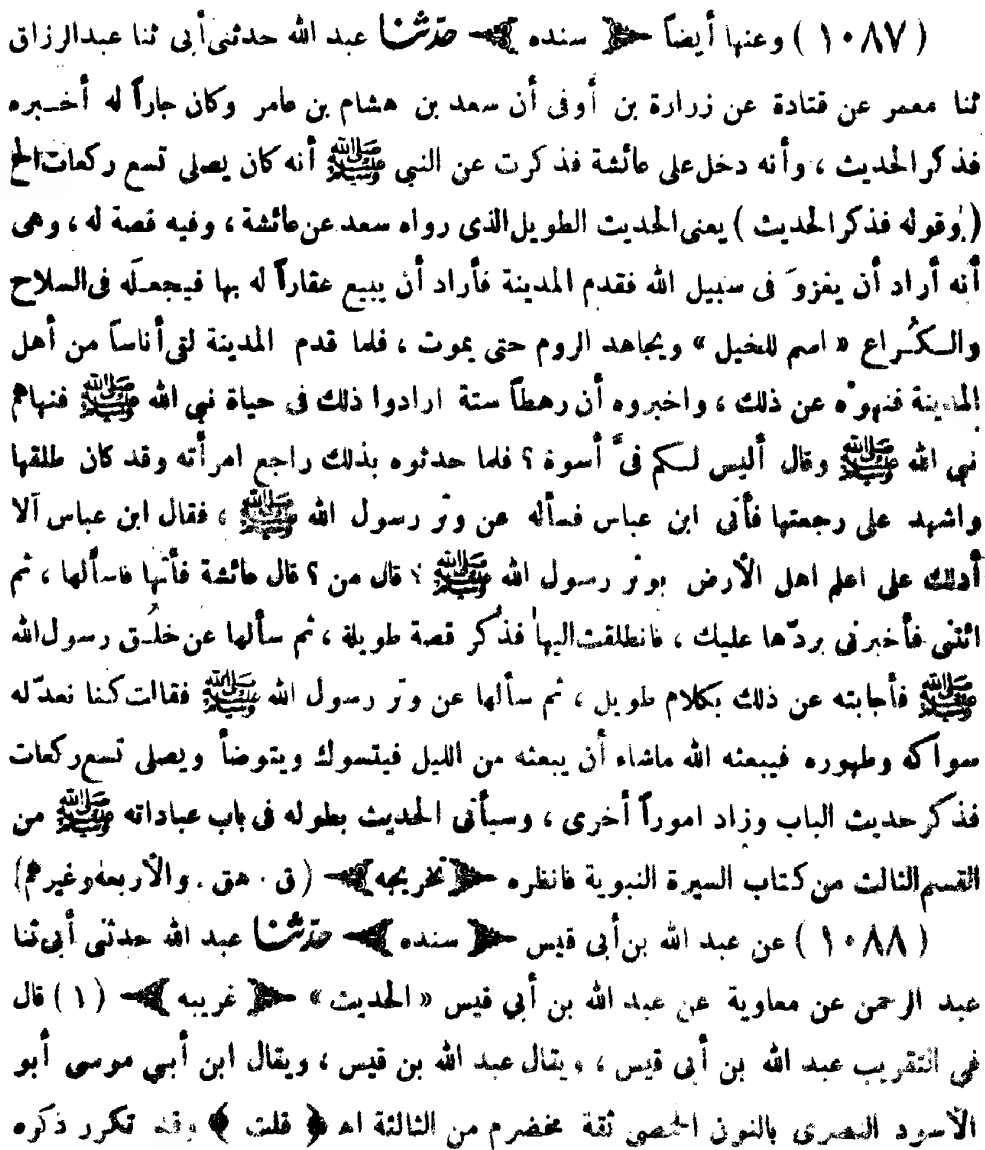 ( ١٠٨٧ ) وعنها أيضاً ﴿ سنده ﴾ حدّثنا عبد الله حدثنى أبى ثنا عبدالرزاق
ثنا معمر عن قتادة عن زرارة بن أوفى أن سعد بن هشام بن عامر وكان جاراً له أخبره
فذكر الحديث ، وأنه دخل على عائشة فذكرت عن النبي ﷺ أنه كان يصلى تسع ركعات الخ
( وقوله فذكر الحديث ) يعنى الحديث الطويل الذى رواه سعد عن عائشة ، وفيه قصة له ، وهى
أنه أراد أن يغزوَ فى سبيل الله فقدم المدينة فأراد أن يبيع عقاراً له بها فيجعلَه فى السلاح
والكُراع « اسم للخيل » ويجاهد الروم حتى يموت ، فلما قدم المدينة لقى أناساً من أهل
المدينة فنهوْه عن ذلك ، واخبروه أن رهطاً ستة ارادوا ذلك فى حياة نبي الله ﷺ فنهاهم
نبي الله ﷺ وقال أليس لكم فىَّ أسوة ؟ فلما حدثوه بذلك راجع امرأته وقد كان طلقها
واشهد على رجعتها فأتى ابن عباس فسأله عن وتر رسول الله ﷺ ، فقال ابن عباس ألا
أدلك على اعلم اهل الأرض بوتر رسول الله ﷺ ؟ قال من ؟ قال عائشة فأتها فاسألها ، ثم
ائتنى فأخبرنى بردّها عليك ، فانطلقت اليها فذكر قصة طويلة ، ثم سألها عن خلُق رسول الله
ﷺ فأجابته عن ذلك بكلام طويل ، ثم سألها عن وتر رسول الله ﷺ فقالت كنا نعدّ له
سواكه وطهوره فيبعثه الله ماشاء أن يبعثه من الليل فيتسوك ويتوضأ ويصلى تسع ركعات
فذكر حديث الباب وزاد اموراً أخرى ، وسيأتى الحديث بطوله فى باب عباداته ﷺ من
القسم الثالث من كتاب السيرة النبوية فانظره ﴿ تخريجه ﴾ ( ق . هق . والأربعة وغيرهم )
( ١٠٨٨ ) عن عبد الله بن أبى قيس ﴿ سنده ﴾ حدّثنا عبد الله حدثنى أبى ثنا
عبد الرحمن عن معاوية عن عبد الله بن أبي قيس « الحديث » ﴿ غريبه ﴾ ( ١ ) قال
في التقريب عبد الله بن أبى قيس ، ويقال عبد الله بن قيس ، ويقال ابن أبي موسى أبو
الأسود النصرى بالنون الحمصى ثقة مخضرم من الثالثة اهـ ﴿ قلت ﴾ وقد تكرر ذكره